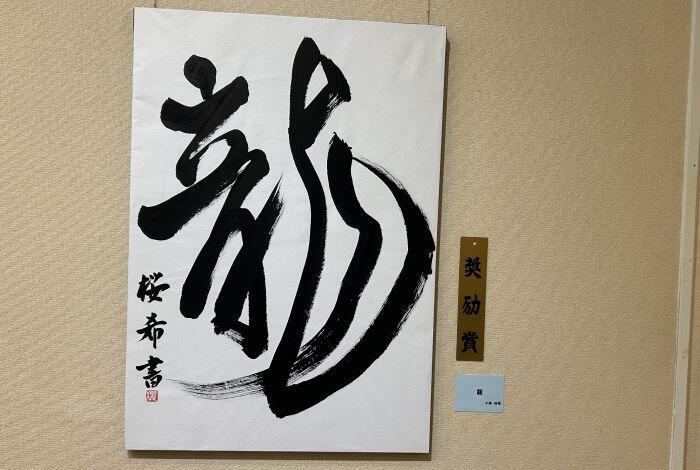 龍
桜希書
奨励賞
龍